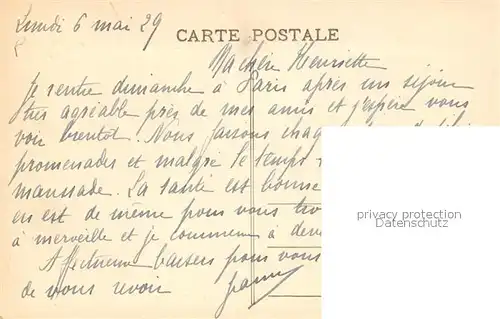 Lundi 6 mai 29
CARTE POSTALE
Ma chère Henriette
Je rentre dimanche à Paris après un séjour
très agréable près de mes amis et j'espère vous
voir bientôt. Nous faisons
promenades et malgré le temps
maussade. La santé est bonne
en est de même pour vous
à merveille et je commence à
Affectueux baisers pour vous
de vous revoir
privacy protection
Datenschutz